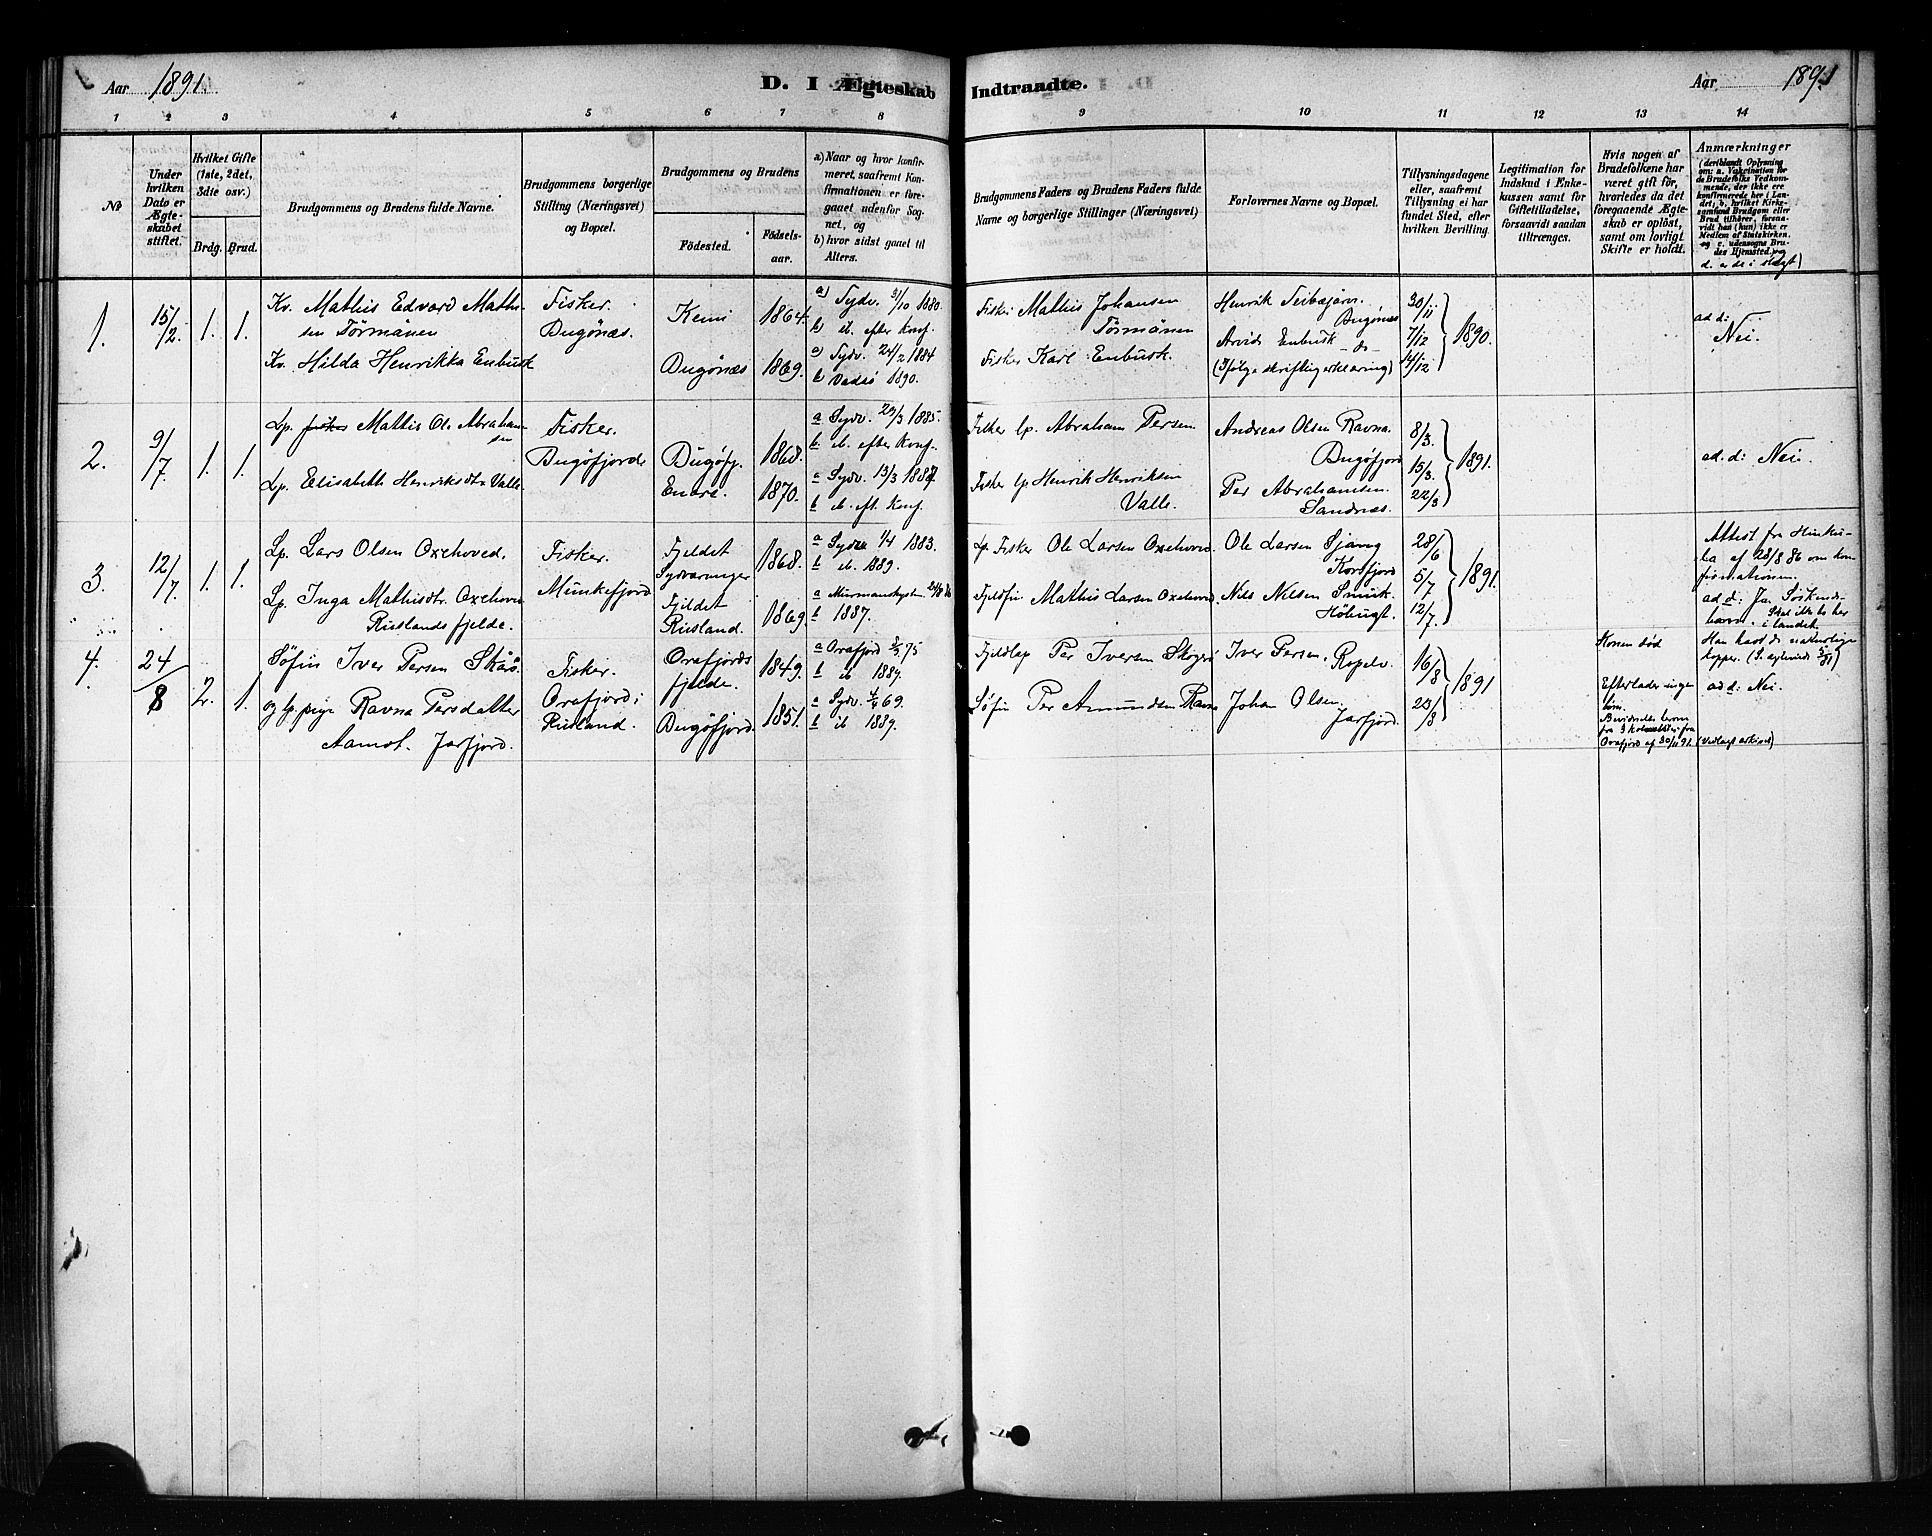 Aar 1891.
D. I Ægteskab Indtraadte.
Aar 1891
1 2 3 4 5 6 7 8 9 10 11 12 13 14
No
Under hvilken Dato er Ægteskabet stiftet.
Hvilket Gifte (1ste, 2det, 3dte osv.)
Brdg. Brud.
Brudgommens og Brudens fulde Navne.
Brudgommens borgerlige Stilling (Næringsvei) og Bopæl.
Brudgommens og Brudens
Födested. Födselsaar.
a) Naar og hvor konfirmeret, saafremt Konfirmationen er foregaaet udenfor Sognet, og
b) hvor sidst gaaet til Alters.
Brudgommens Faders og Brudens Faders fulde Navne og borgerlige Stillinger (Næringsvei)
Forlovernes Navne og Bopæl.
Tillysningsdagene eller, saafremt Tillysning ei har fundet Sted, efter hvilken Bevilling.
Legitimation for Indskud i Enkekassen samt for Giftetilladelse, forsaavidt saadan tiltrænges.
Hvis nogen af Brudefolkene har været gift för, hvorledes da det foregaaende Ægteskab er oplöst, samt om lovligt Skifte er holdt.
Anmærkninger
(deriblandt Oplysning om: a. Vakcination for de Brudefolks Vedkommende, der ikke ere konfirmerede her i Landet; b. hvilket Kirkesamfund Brudgom eller Brud tilhörer, forsaavidt han (hun) ikke er Medlem af Statskirken, og c. udensogns Brudes Hjemsted, og d. er de i slægt)
1. 15/2 1. 1.
Kv. Mathis Edvard Mathisen Törmänen
Fisker. Bugönæs.
Kemi 1864.
a) Sydv. 3/10 1880.
b) ib. efter Konf.
Fisker Mathis Johansen Törmänen
Henrik Seibæjärvi. Bugönæs
30/11 7/12 14/12 1890.
ad d: Nei.
Kv. Hilda Henrikka Enbusk
Bugönæs 1869.
a) Sydv. 24/2 1884
b) Vadsö 1890.
Fisker Karl Enbusk.
Arvid Enbusk - do -
(Ifölge skriftlig erklæring)
2. 9/7. 1. 1.
Lp. Mathis Ol. Abrahamsen
Fisker. Bugöfjord
Bugöfj. 1868.
a Sydv. 29/3 1885.
b. ib. efter Konf.
Fisker lp. Abraham Persen
Andreas Olsen Ravna. Bugöfjord
8/3. 15/3. 22/3 1891.
ad. d: Nei.
Lp. Elisabeth Henriksdtr Valle.
Enare. 1870.
a Sydv. 13/3 1887
b ib. eft. Konf.
Fisker lp. Henrik Henriksen Valle.
Per Abrahamsen. Sandnæs.
3. 12/7. 1. 1.
Lp. Lars Olsen Oxehoved.
Fisker. Munkefjord
Fjeldet Sydvaranger 1868.
a Sydv. 1/4 1883.
b ib. 1889.
Lp. Fisker Ole Larsen Oxehoved.
Ole Larsen Sjang Korsfjord
28/6 5/7 12/7. 1891.
Attest fra
af 28/8 86 om konfirmationen.
ad d: Ja Söskendebarn.
Skal ikke bo her i landet.
Lp. Inga Mathisdtr. Oxehoved Ruslands fjelde.
Fjeldet Rusland. 1869.
a Murmanskyst.
b 1887.
Fjeldfin Mathis Larsen Oxehoved.
Nils Nilsen Smuk. Höbugt.
4. 24/8 2. 1.
Söfin Iver Persen Skåö.
Fisker. Orafjord i Rusland.
Orafjords fjelde. 1849.
a Orafjord 75
b ib 1887.
Fjeldlap Per Iversen Skogerö
Iver Persen. Ropelv.
16/8 23/8 1891
Konen död
Efterlader ingen börn.
fra Orafjord af 30/11 91. (Vedlagt arkivet)
Han havde naturlige kopper.
ad d: Nei.
og lp. pige Ravna Persdatter Aamot. Jarfjord.
Bugöfjord. 1851.
a Sydv. 4/4 69.
b ib 1889.
Söfin Per Amundsen Ravna
Johan Olsen. Jarfjord.